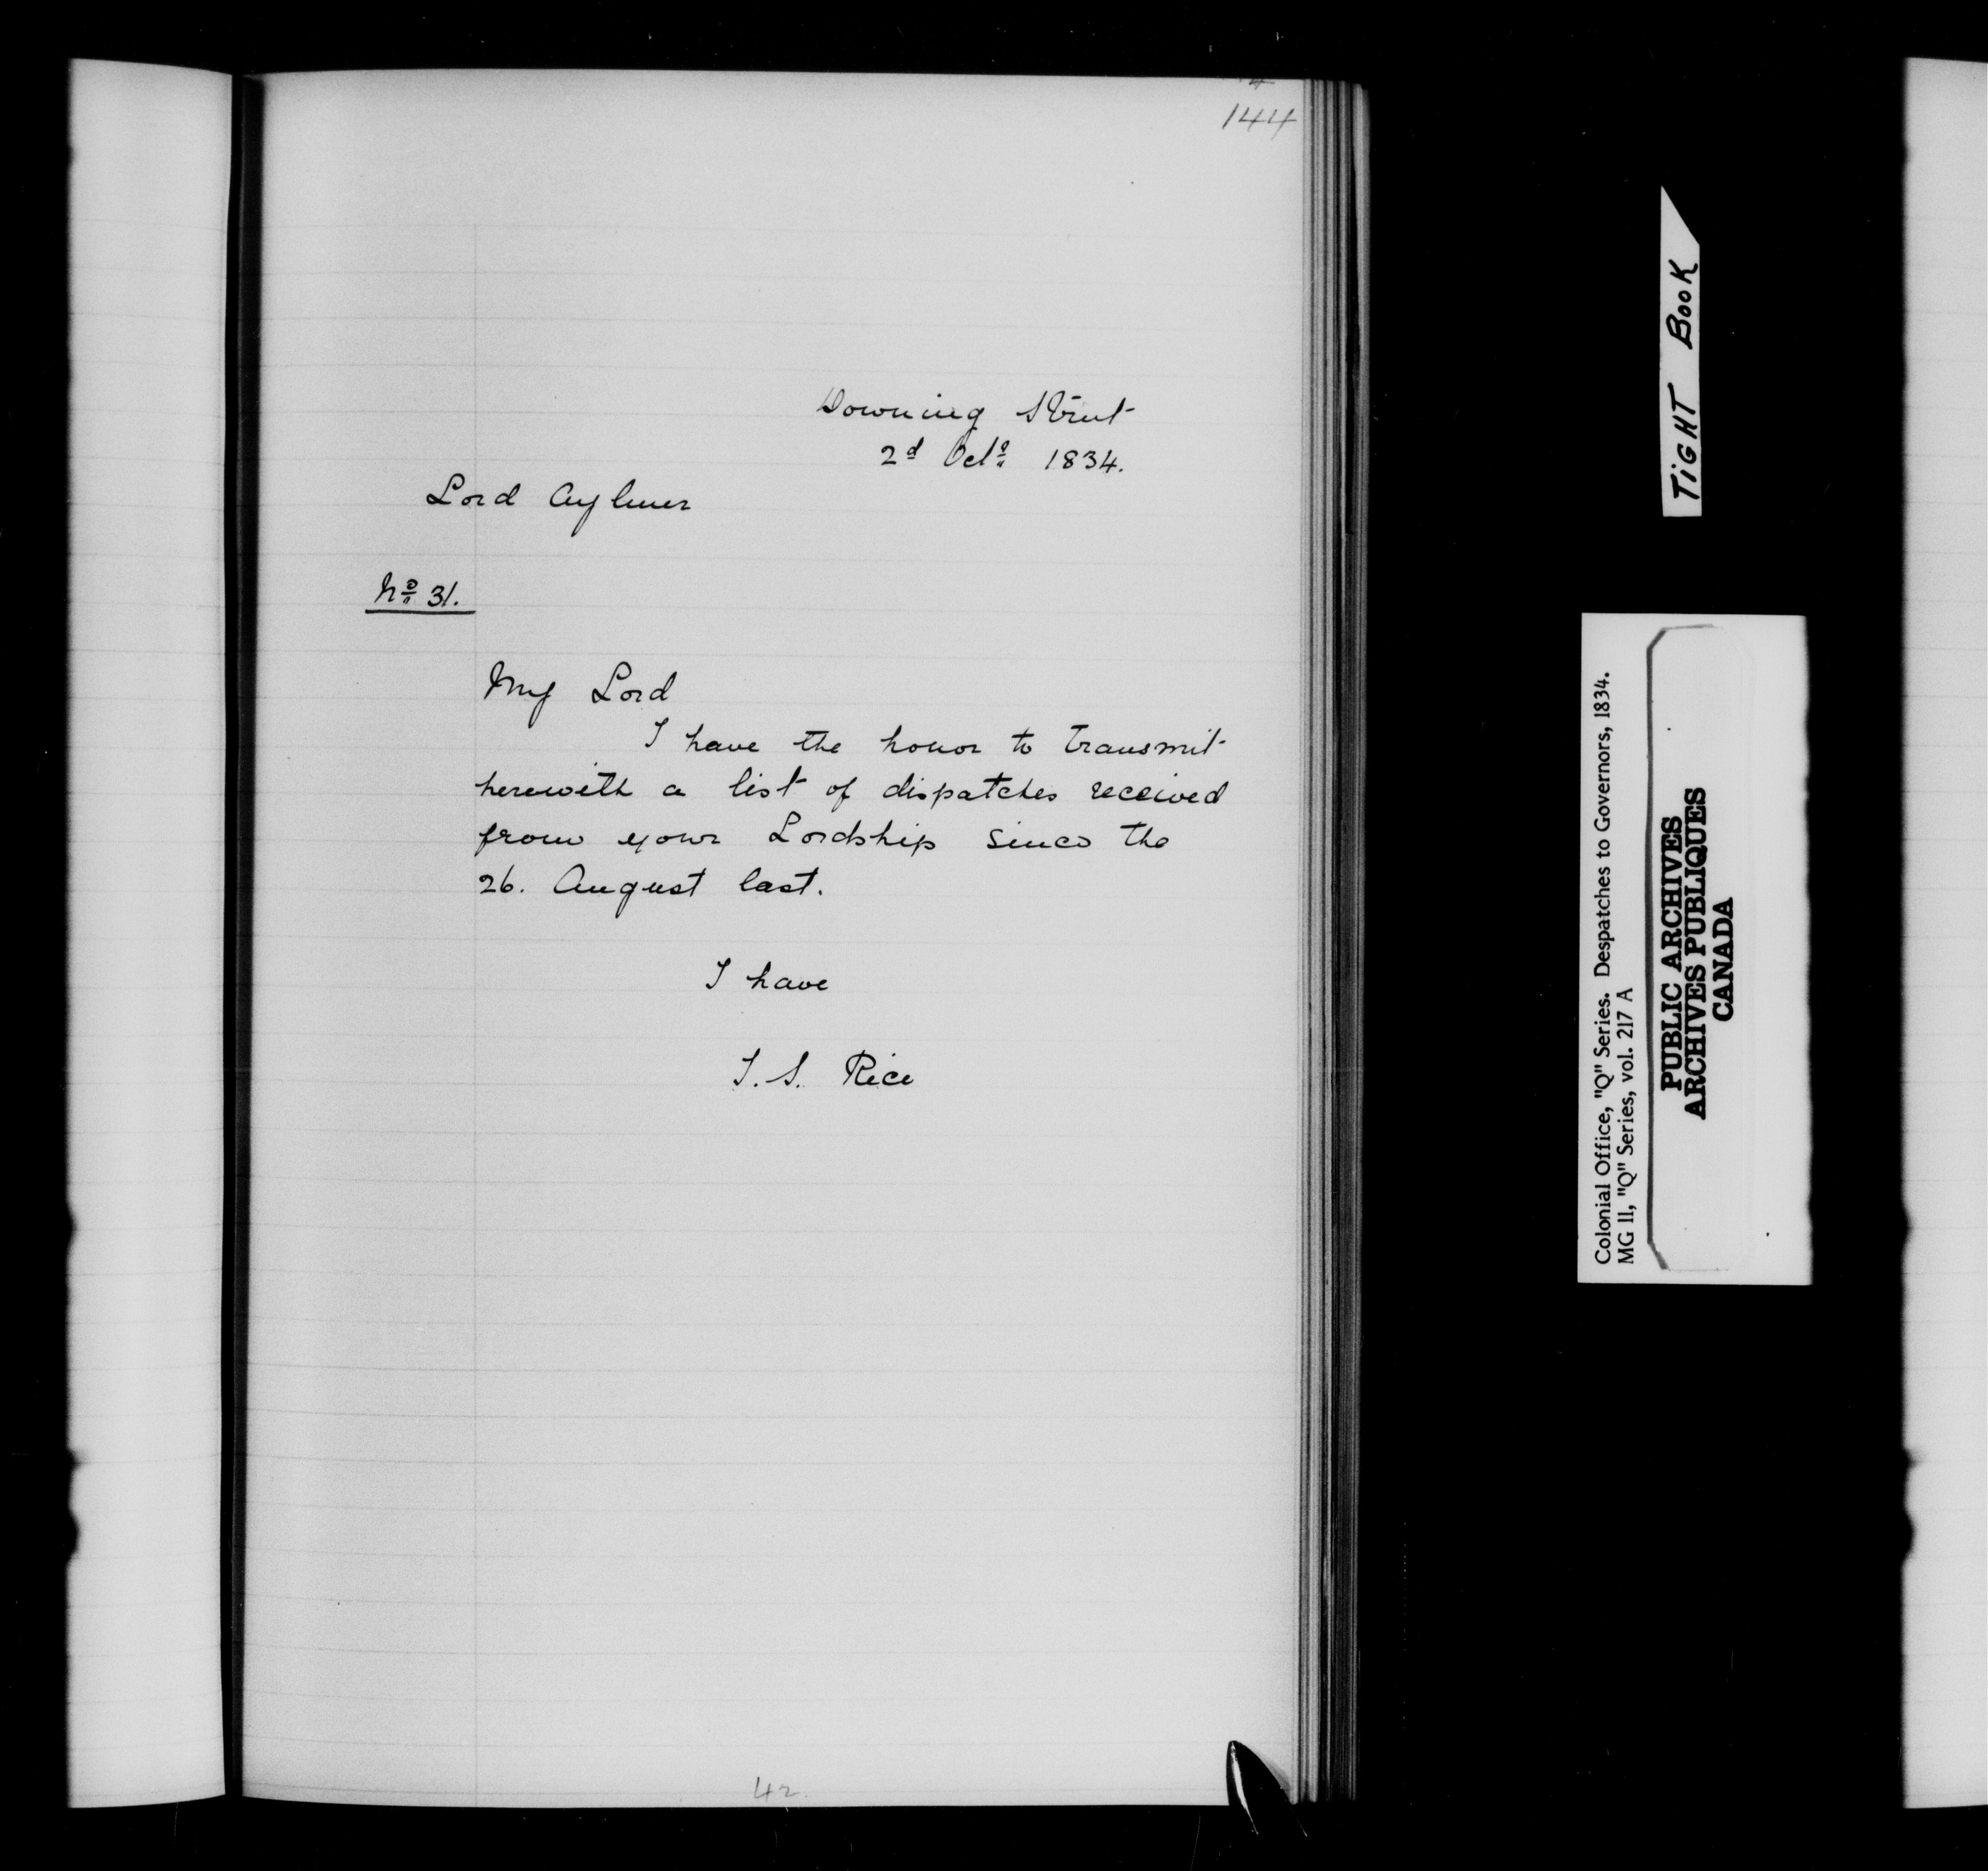 144
Downing Street
2d Octo 1834.
Lord Aylmer
No 31.
My Lord
I have the honor to transmit
herewith a list of dispatches received
from your Lordship since the
26. August last.
I have
T. S. Rice
42
TiGHT BOOK
Colonial Office, "Q" Series. Despatches to Governors, 1834.
MG 11, "Q" Series, vol. 217 A
PUBLIC ARCHIVES
ARCHIVES PUBLIQUES
CANADA